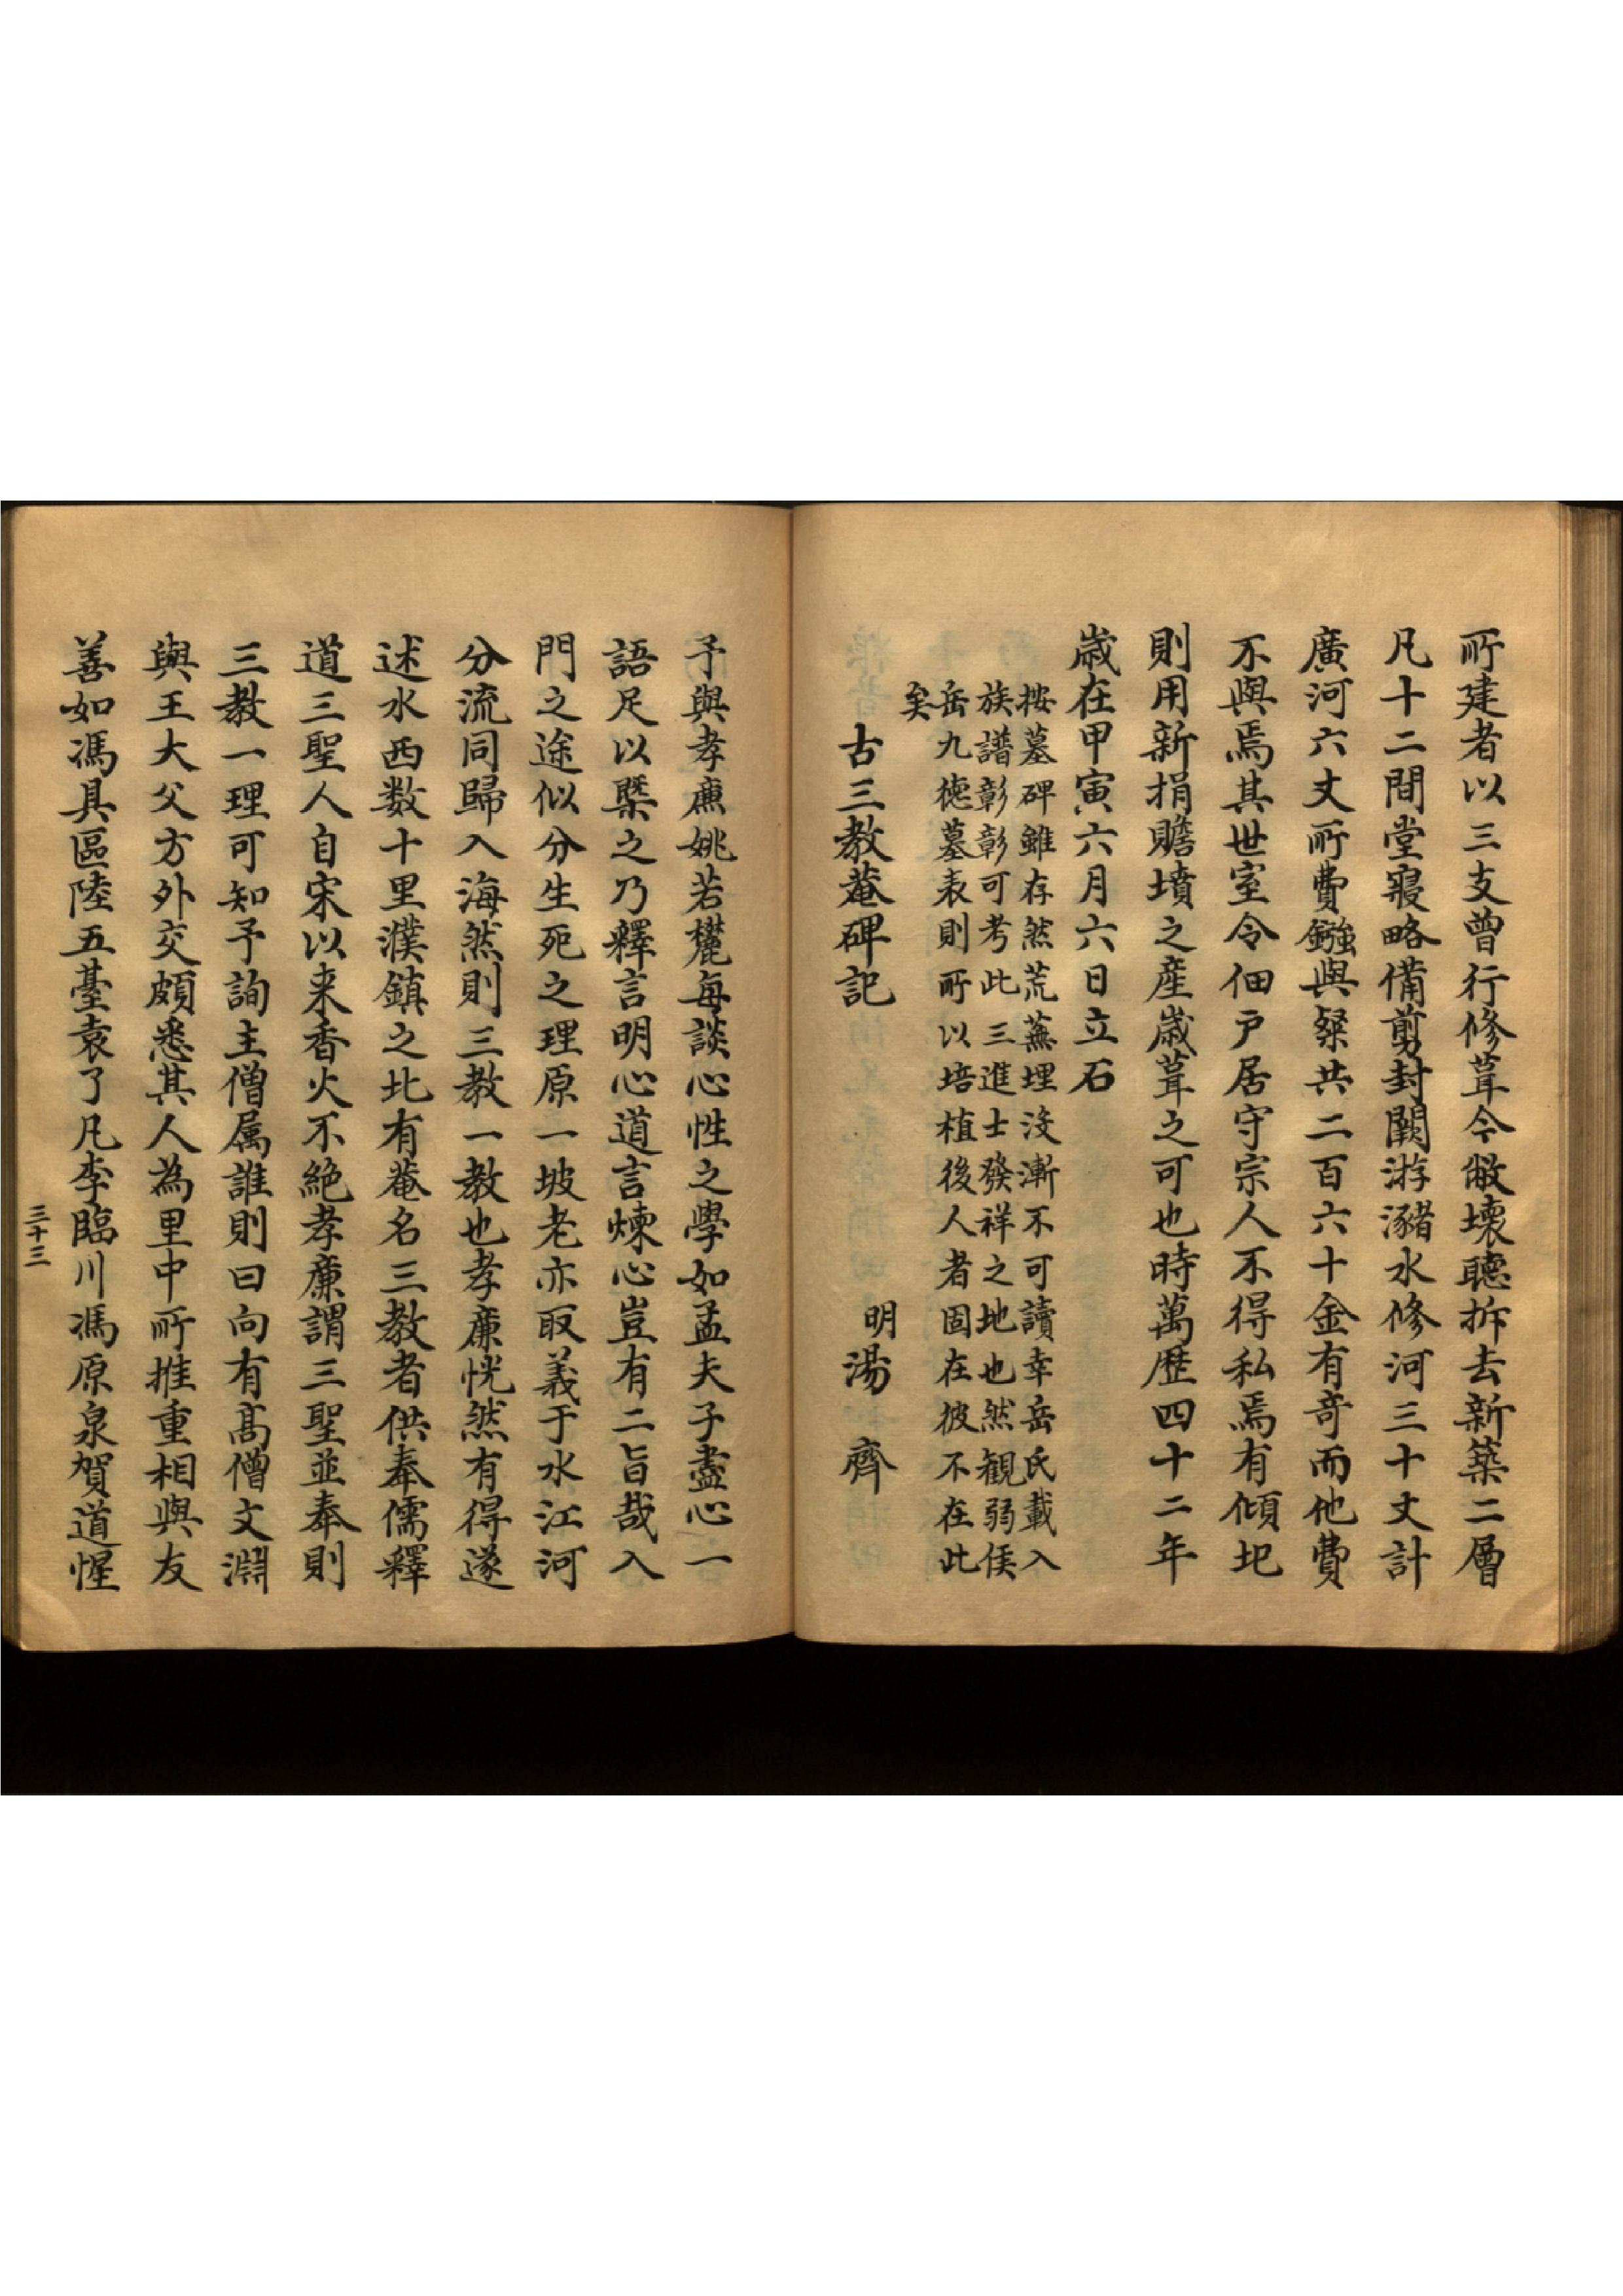 所建者以三支曽行修葺今敝壊聴拆去新築二層
凡十二間堂寝略備剪封闕游瀦水修河三十丈計
廣河六丈所費鏹與粲共二百六十金有竒而他費
不與焉其世室令佃戸居守宗人不得私焉有傾圯
則用新捐贍墳之産嵗葺之可也時萬歴四十二年
嵗在甲寅六月六日立石
按墓碑雖存然荒蕪埋没漸不可讀幸岳氏載入
族譜彰彰可考此三進士發祥之地也然観弱侯
岳九徳墓表則所以培植後人者固在彼不在此
矣
古三教菴碑記
明湯齊
予與孝亷姚若𣞀每談心性之學如孟夫子盡心一
語足以槩之乃釋言明心道言煉心豈有二旨哉入
門之途似分生死之理原一坡老亦取義于水江河
分流同歸入海然則三教一教也孝廉恍然有得遂
述水西数十里濮鎮之北有菴名三教者供奉儒釋
道三聖人自宋以来香火不絶孝廉謂三聖並奉則
三教一理可知予詢主僧属誰則曰向有髙僧文淵
與王大父方外交頗悉其人為里中所推重相與友
善如馮具區陸五臺袁了凡李臨川馮原泉賀道惺
三十三